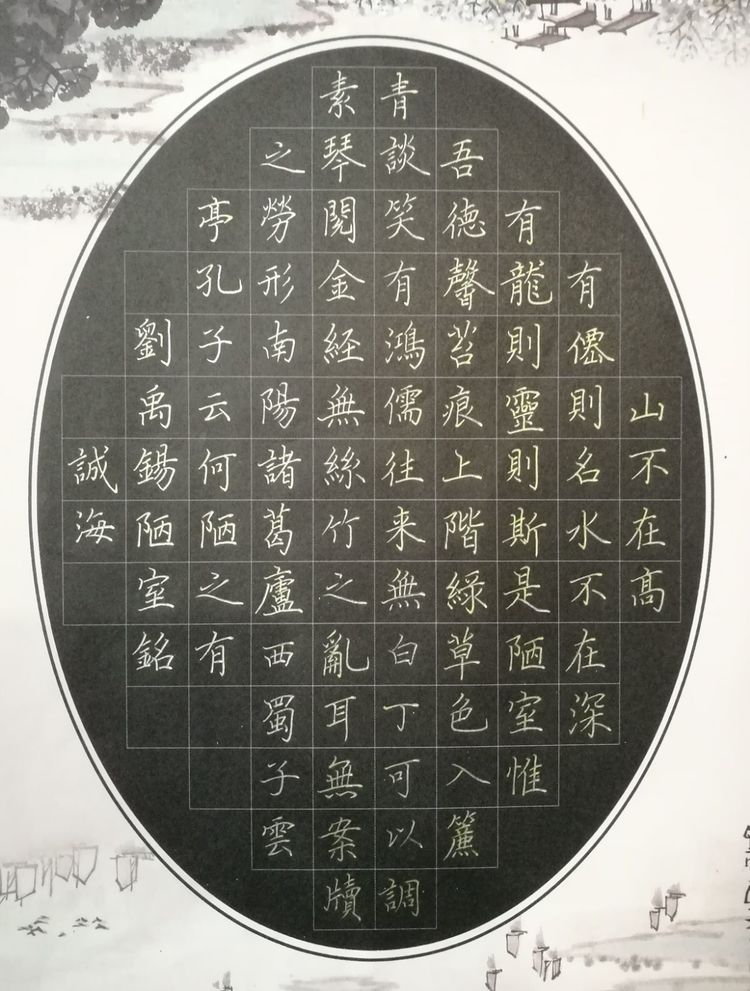 山不在高
有僊則名水不在深
有龍則靈則斯是陋室惟
吾德馨苔痕上階綠草色入簾
青談笑有鴻儒往来無白丁可以調
素琴閱金経無絲竹之亂耳無案牘
之勞形南陽諸葛廬西蜀子雲
亭孔子云何陋之有
劉禹錫陋室銘
誠海